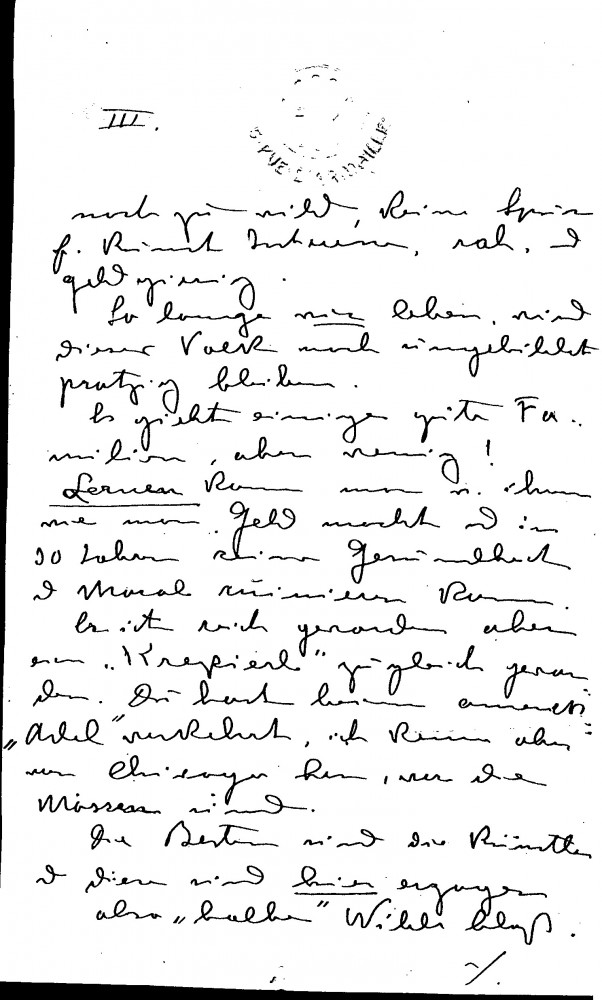 III.
5, RUE L'ART
noch zu wild, keine Spur
f. Kunst Interesse, roh, u
geldgierig.
So lange wir leben, wird
dieses Volk noch eingebildet
protzig bleiben.
Es giebt einige gute Fa-
milien, aber wenig!
Lernen kann man v. ihnen
wie man Geld macht u in
10 Jahren seine Gesundheit
u Moral ruinieren kann.
Er ist reich geworden aber
ein "Krepierl" zugleich gewor
den. Du hast beim amerik
"Adel" verkehrt, ich kenne aber
von Chicago her, wer die
Massen sind.
Die Besten sind die Künstler
u diese sind hier erzogen
also "halbe" Wilde bloß.